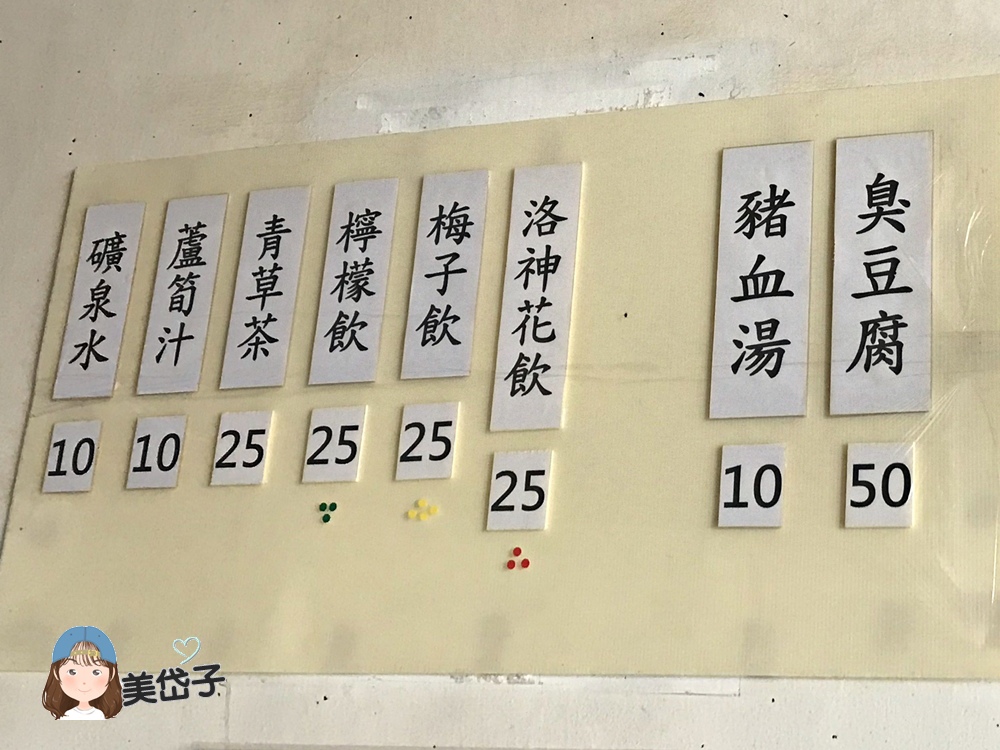 臭豆腐
50
豬血湯
10
洛神花飲
25
梅子飲
25
檸檬飲
25
青草茶
25
蘆筍汁
10
礦泉水
10
美岱子